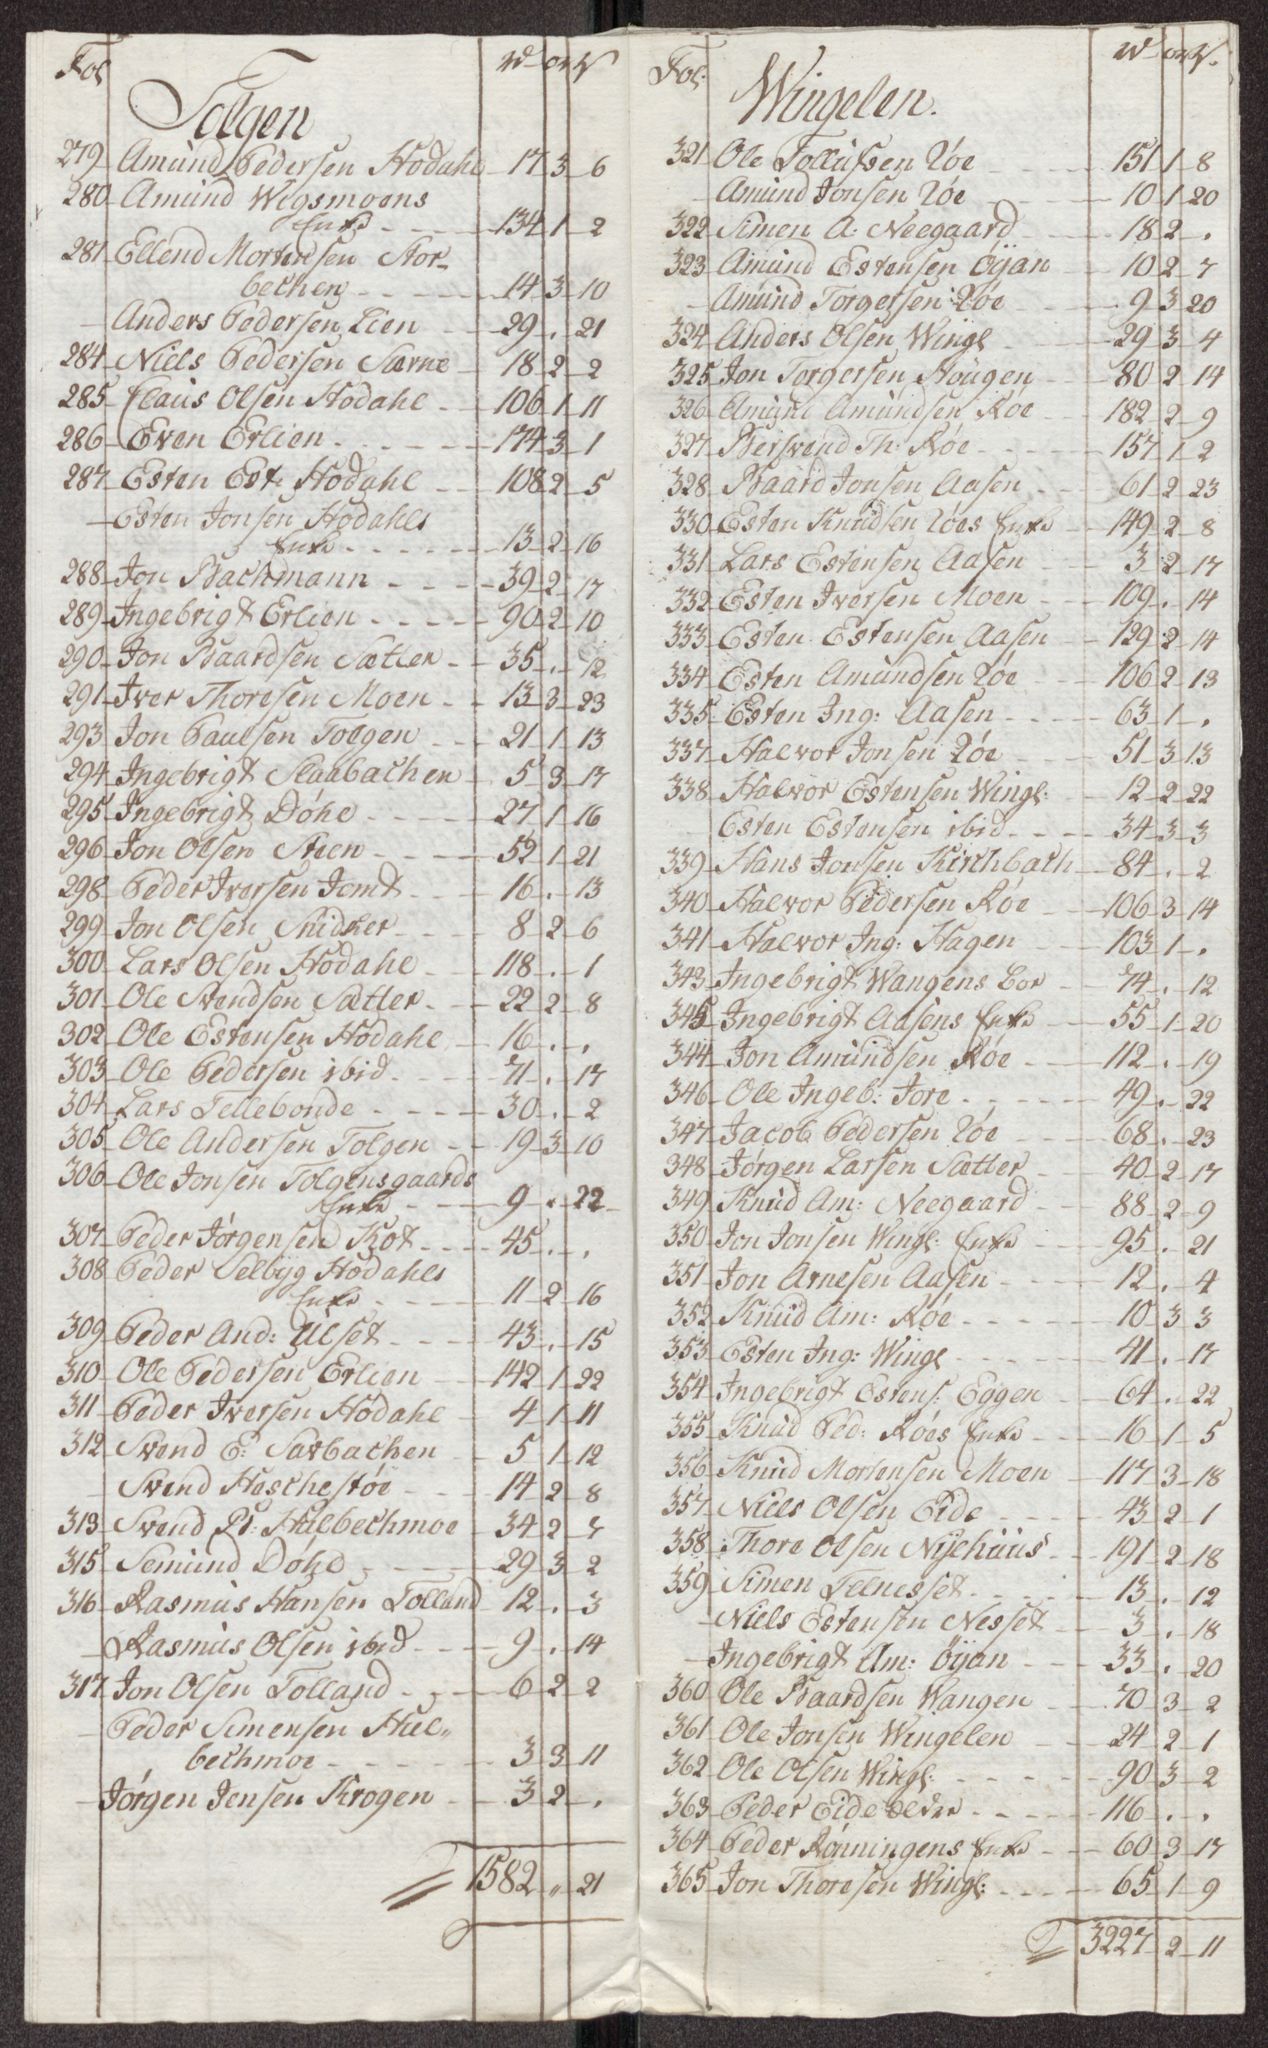 Fol rd ort ß
Tolgen
279 Amund Pedersen Hodahl 17 3 6
280 Amund Wegsmoens
Enke 134 1 2
281 Ellend Mortensen Stor-
bechen 14 3 10
Anders Pedersen Lien 29 . 21
284 Niels Pedersen Særne 18 2 2
285 Claus Olsen Hodahl 106 1 11
286 Even Erlien 174 3 1
287 Esten Est: Hodahl 108 2 5
Esten Jonsen Hodahls
Enke 13 2 16
288 Jon Bachmann 39 2 17
289 Ingebrigt Erlien 90 2 10
290 Jon Baardsen Sætter 35 . 12
291 Iver Thoresen Moen 13 3 23
293 Jon Paulsen Tolgen 21 1 13
294 Ingebrigt Slaabachen 5 3 17
295 Ingebrigt Döhl 27 1 16
296 Jon Olsen Steen 52 1 21
298 Peder Iversen Jomt 16 . 13
299 Jon Olsen Snidker 8 2 6
300 Lars Olsen Hodahl 118 . 1
301 Ole Svendsen Sætter 22 2 8
302 Ole Estensen Hodahl 16 . .
303 Ole Pedersen ibid 71 . 17
304 Lars Tellebonde 30 . 2
305 Ole Andersen Tolgen 19 3 10
306 Ole Jonsen Tolgensgaards
Enke 9 . 22
307 Peder Jørgensen Kot 45 . .
308 Peder Hodahls
Enke 11 2 16
309 Peder And: Ulset 43 . 15
310 Ole Pedersen Erlien 142 1 22
311 Peder Iversen Hodahl 4 1 11
312 Svend E: Savbachen 5 1 12
Svend Heschestöe 14 2 8
313 Svend P: Hulbechmoe 34 2 7
315 Semund Döhl 29 3 2
316 Rasmus Hansen Tolland 12 . 3
Rasmus Olsen ibid 9 . 14
317 Jon Olsen Tolland 6 2 2
Peder Simensen Hul-
bechmoe 3 3 11
Jørgen Jensen Krogen 3 2 .
1582 " 21
Fol: rd ort ß.
Wingelen.
321 Ole Tollufsen Röe 151 1 8
Amund Jonsen Röe 10 1 20
322 Simen A: Neegaard 18 2 .
323 Amund Estensen Öÿan 10 2 7
Amund Torgersen Röe 9 3 20
324 Anders Olsen Wingl 29 3 4
325 Jon Torgersen Högen 80 2 14
326 Amund Amundsen Röe 182 2 9
327 Bersvend Th: Röe 157 1 2
328 Baard Jonsen Aasen 61 2 23
330 Esten Knudsen Röes Enke 149 2 8
331 Lars Estensen Aasen 3 2 17
332 Esten Iversen Moen 109 . 14
333 Esten Estensen Aasen 129 2 14
334 Esten Amundsen Röe 106 2 13
335 Esten Ing: Aasen 63 1 .
337 Halvor Jonsen Röe 51 3 13
338 Halvor Estensen Wingl: 12 2 22
Esten Estensen ibid 34 3 3
339 Hans Jonsen Kirchbach 84 . 2
340 Halvor Pedersen Röe 106 3 14
341 Halvor Ing: Hagen 103 1 .
343 Ingebrigt Wangens Bor 74 . 12
345 Ingebrigt Aasens Enke 55 1 20
344 Jon Amundsen Röe 112 . 19
346 Ole Ingeb: Jore 49 . 22
347 Jacob Pedersen Röe 68 . 23
348 Jørgen Larsen Sætter 40 2 17
349 Knud Am: Neegaard 88 2 9
350 Jon Jonsen Wingl: Enke 95 . 21
351 Jon Arnesen Aasen 12 . 4
352 Knud Am: Röe 10 3 3
353 Esten Ing: Wingl 41 . 17
354 Ingebrigt Estens: Eggen 64 . 22
355 Knud Ped: Röes Enke 16 1 5
356 Knud Mortensen Moen 117 3 18
357 Niels Olsen Eide 43 2 1
358 Thore Olsen Nÿehuus 191 2 18
359 Simen Telnesset 13 . 12
Niels Estensen Nesset 3 . 18
Ingebrigt Am: Öÿan 33 . 20
360 Ole Baardsen Wangen 70 3 2
361 Ole Jonsen Wingelen 24 2 1
362 Ole Olsen Wingl: 90 3 2
363 Peder Eide Elder 116 . .
364 Peder Rönningens Enke 60 3 17
365 Jon Thoresen Wingl: 65 1 9
3227 2 11